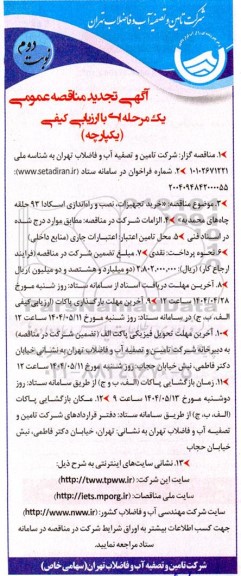 شرکت تامین و تصفیه آب و فاضلاب تهران
نوبت دوم
آگهی تجدید مناقصه عمومی
یک مرحله‌ای با ارزیابی کیفی
(یکپارچه)
۱. مناقصه گزار: شرکت تامین و تصفیه آب و فاضلاب تهران به شناسه ملی
۱۰۱۰۲۶۷۱۳۲۱ ۲. شماره فراخوان در سامانه ستاد (www.setadiran.ir):
۲۰۰۴۰۹۴۸۴۲۰۰۰۰۵۵
۳. موضوع مناقصه: «خرید تجهیزات، نصب و راه‌اندازی اسکادا ۹۳ حلقه
چاه‌های محمدیه» ۴. الزامات شرکت در مناقصه: مطابق موارد درج شده
در اسناد فنی ۵. محل تامین اعتبار: اعتبارات جاری (منابع داخلی)
۶. نحوه پرداخت: نقدی ۷. مبلغ تضمین شرکت در مناقصه (فرایند
ارجاع کار) (ریال): ۲٫۸۰۲٫۰۰۰٫۰۰۰ (دو میلیارد و هشتصد و دو میلیون) ریال
۸. آخرین مهلت دریافت اسناد از سامانه ستاد: روز شنبه مورخ
۱۴۰۴/۰۴/۲۸ ساعت ۱۲ ۹. آخرین مهلت بارگذاری پاکات (ارزیابی کیفی
الف، ب، ج) در سامانه ستاد: روز شنبه مورخ ۱۴۰۴/۰۵/۱۱ ساعت ۱۲
۱۰. آخرین مهلت تحویل فیزیکی پاکت الف (تضمین شرکت در مناقصه)
به دبیرخانه شرکت تامین و تصفیه آب و فاضلاب تهران به نشانی خیابان
دکتر فاطمی، نبش خیابان حجاب: روز شنبه مورخ ۱۴۰۴/۰۵/۱۱ ساعت ۱۲
۱۱. زمان بازگشایی پاکات (الف، ب و ج) از طریق سامانه ستاد: روز
دوشنبه مورخ ۱۴۰۴/۰۵/۱۳ ساعت ۹ ۱۲. مکان بازگشایی پاکات
(الف، ب، ج) از طریق سامانه ستاد: دفتر قراردادهای شرکت تامین و
تصفیه آب و فاضلاب تهران به نشانی: تهران، خیابان دکتر فاطمی، نبش
خیابان حجاب
۱۳. نشانی سایت‌های اینترنتی به شرح ذیل:
سایت این شرکت: (http://tww.tpww.ir)
سایت ملی مناقصات: (http://iets.mporg.ir)
سایت شرکت مهندسی آب و فاضلاب کشور: (http://www.nww.ir)
جهت کسب اطلاعات بیشتر به اوراق شرایط شرکت در مناقصه در سامانه
ستاد مراجعه نمایید.
شرکت تامین و تصفیه آب و فاضلاب تهران (سهامی خاص)